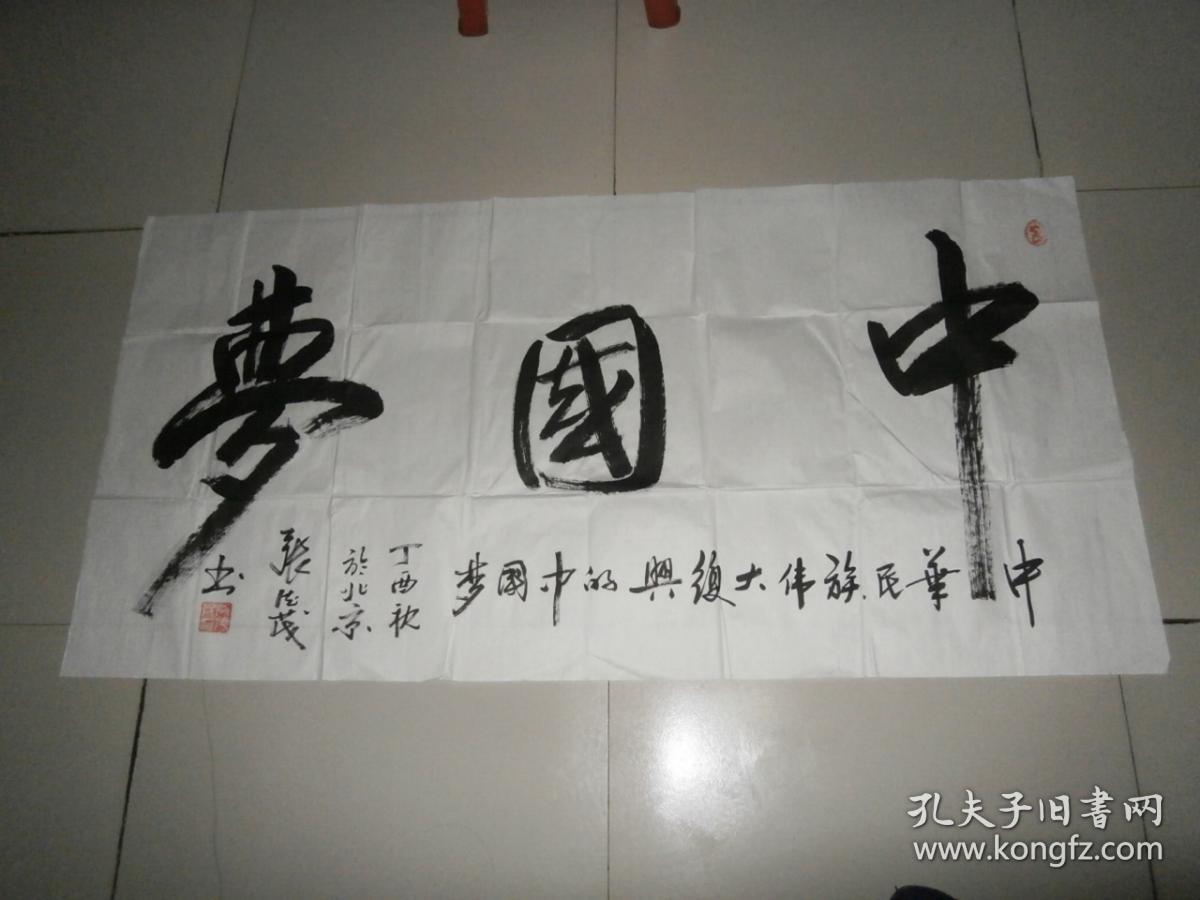 中國夢
中華民族伟大復興的中國梦
丁酉秋
於北京
張
书
孔夫子旧書网
www.kongfz.com